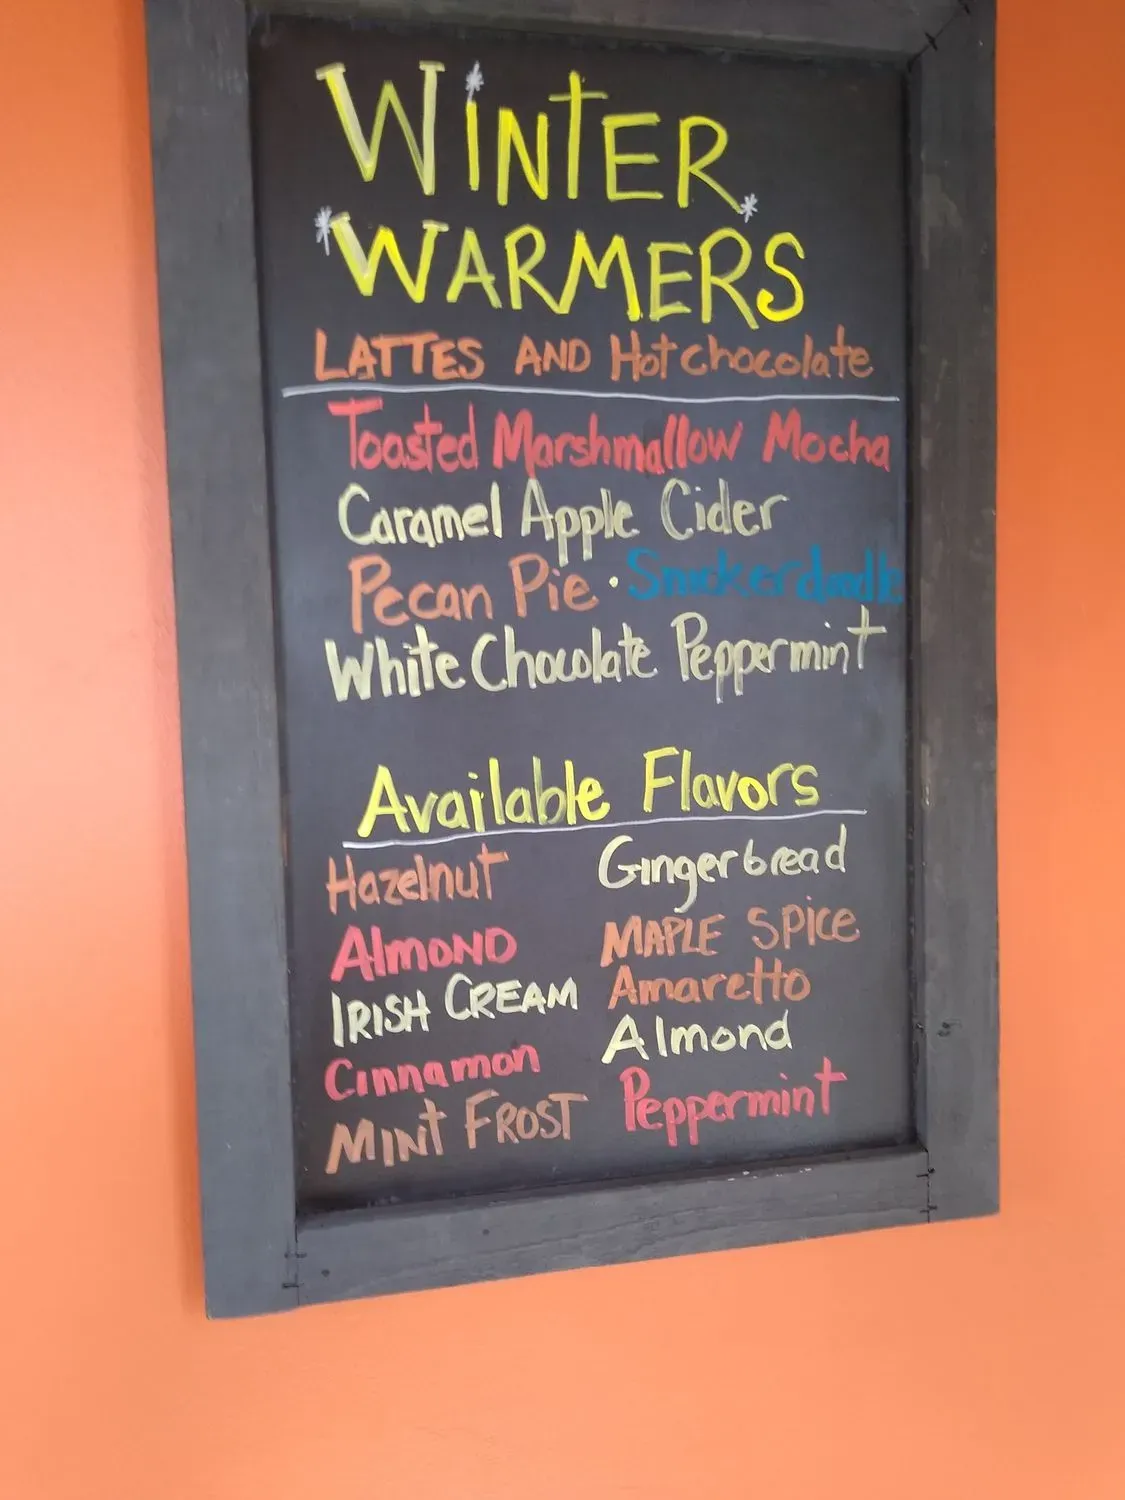 WINTER
WARMERS
LATTES AND Hot chocolate
Toasted Marshmallow Mocha
Caramel Apple Cider
Pecan Pie · Snickerdoodle
White Chocolate Peppermint
Available Flavors
Hazelnut
Almond
IRISH CREAM
Cinnamon
MINT FROST
Gingerbread
MAPLE SPice
Amaretto
Almond
Peppermint